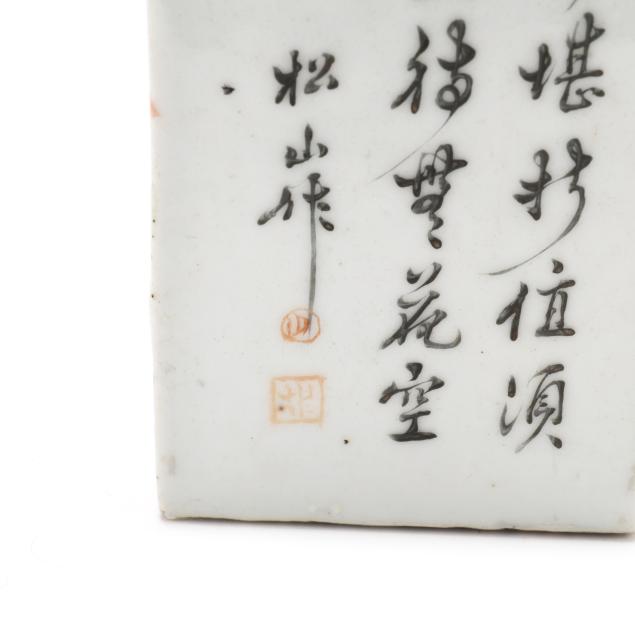 堪折值須
待無花空
松山作